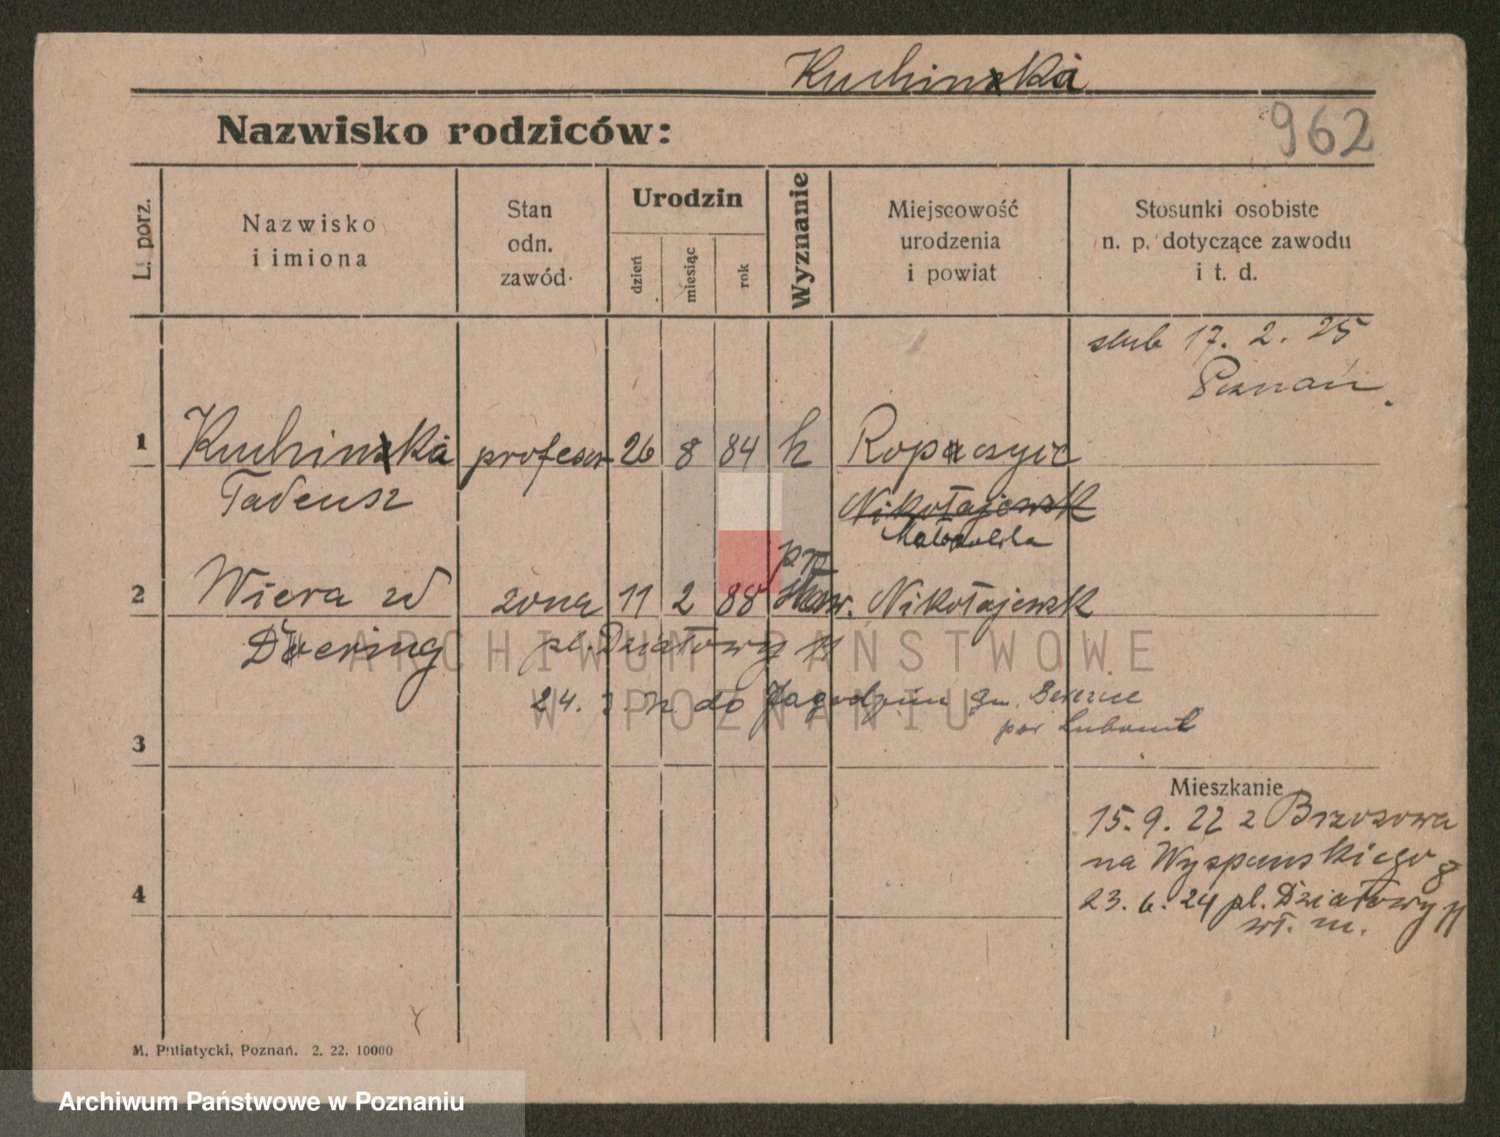 Kuchinka
Nazwisko rodziców:
962
L. porz.
Nazwisko
i imiona
Stan
odn.
zawód
Urodzin
dzień
miesiąc
rok
Wyznanie
Miejscowość
urodzenia
i powiat
Stosunki osobiste
n. p. dotyczące zawodu
i t. d.
ślub 17. 2. 25
Poznań.
1 Kuchinka profesor 26 8 84 k Ropczyce
Tadeusz
Nikołajewsk
Małopolska
pr
2 Wiera zd żona 11 2 88 sław. Nikołajewsk
Doering pl. Działowy 11
24. do Jagodzin gm.
pow Luboml
3
Mieszkanie
15. 9. 22 z Brzozowa
na Wyspiańskiego 8
4
23. 6. 24 pl. Działowy 11
wł. m.
M. Putiatycki, Poznań. 2. 22. 10000
ARCHIWUM PAŃSTWOWE
W POZNANIU
Archiwum Państwowe w Poznaniu